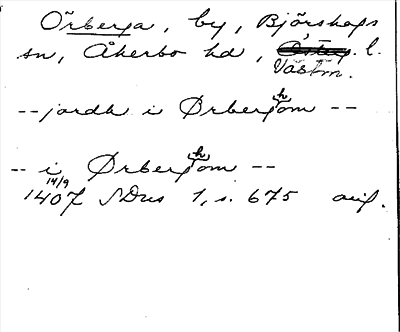 Örberga, by, Björskogs
sn, Åkerbo hd, l.
Västm.
-- jordh i Ørberghom --
-- i Ørberghom --
14/9
1407 SDns 1, s. 675 avf.